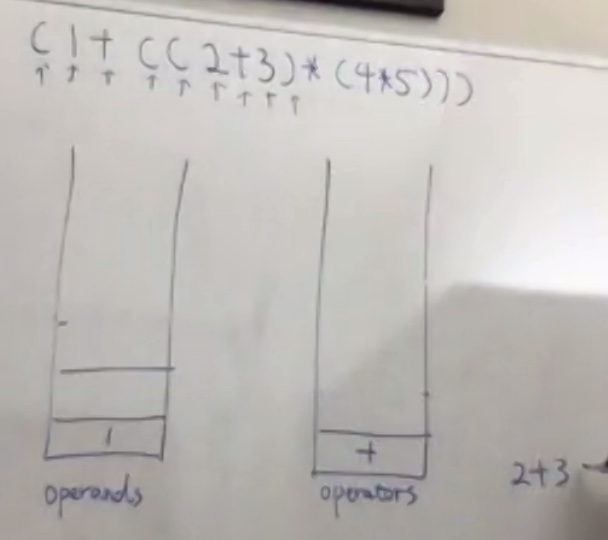 (1+((2+3)*(4*5)))
1
+
operands
operators
2+3